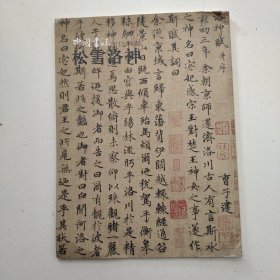 洛神賦 并序
曹子建
黃初三年余朝京師還濟洛川古人有言斯水
之神名曰宓妃感宋玉對楚王神女之事遂作
斯賦其詞曰
余從京域言歸東藩背伊闕越轘轅經通谷
陵景山日既西傾車殆馬煩爾迺稅駕乎蘅皋
與乎楊林流眄乎洛川於是精
焉思散俯則未察仰以殊觀睹一麗
迺援御者而告之曰爾有覿於彼者
乎彼何人斯若此之豔也御者對曰臣聞河洛之
神名曰宓妃然則君王之所見無迺是乎其狀若
松雪洛神